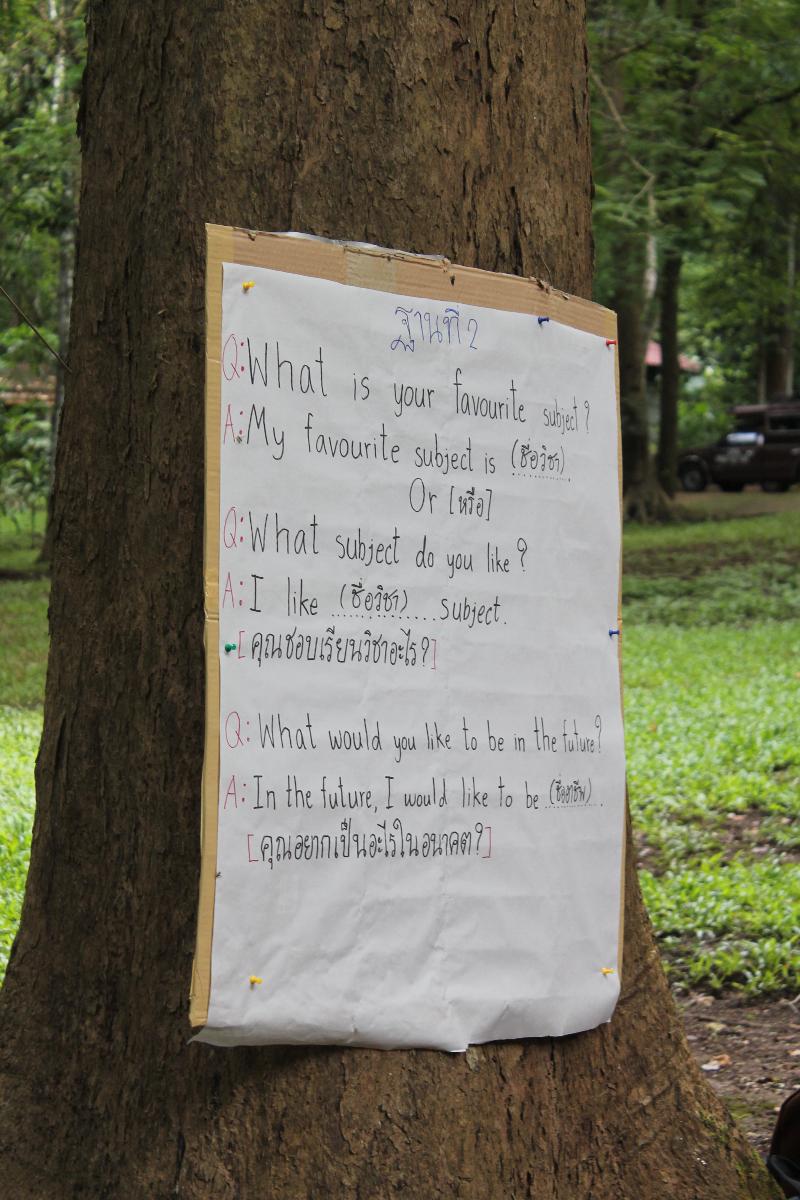 ฐานที่ 2
Q: What is your favourite subject?
A: My favourite subject is (ชื่อวิชา)
Or [หรือ]
Q: What subject do you like?
A: I like (ชื่อวิชา) subject.
[คุณชอบเรียนวิชาอะไร?]
Q: What would you like to be in the future?
A: In the future, I would like to be (ชื่ออาชีพ).
[คุณอยากเป็นอะไรในอนาคต?]